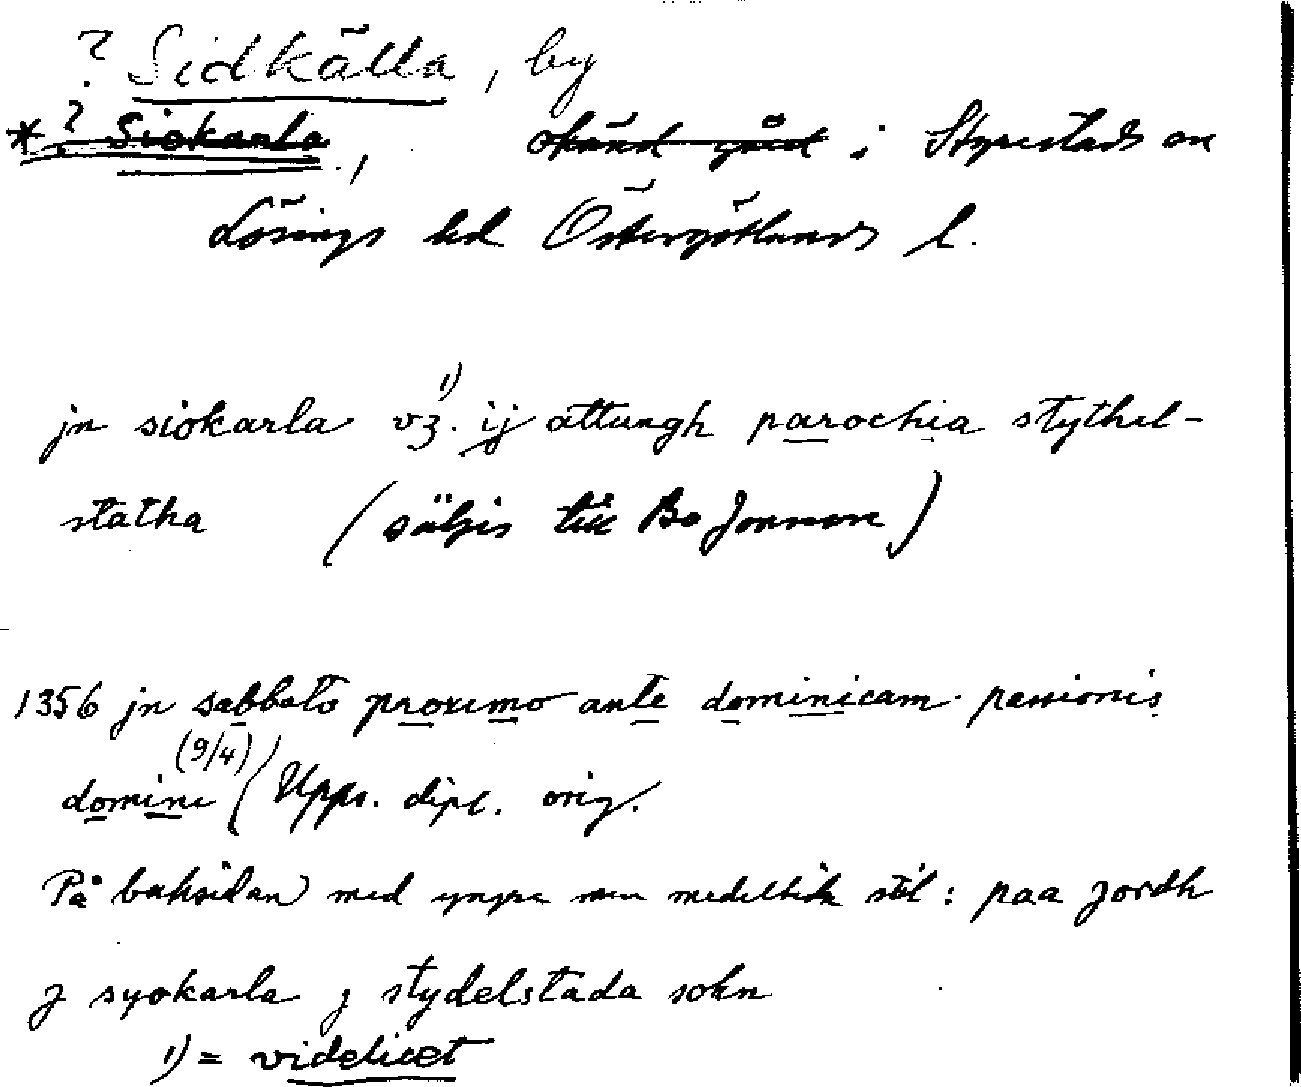 ? Sidkälla, by
*? Siokarla, okänd gård i Styrestads sn
Lösings hd Östergötlands l.
jn siokarla vz. 1) ij attungh parochia stythel-
statha (säljes till Bo Jonsson)
1356 jn sabbato proximo ante dominicam passionis
domini (9/4) Upps. dipl. orig.
På baksidan med yngre men medeltida stil: paa jordh
j syokarla j stydelstada sokn
1) = videlicet